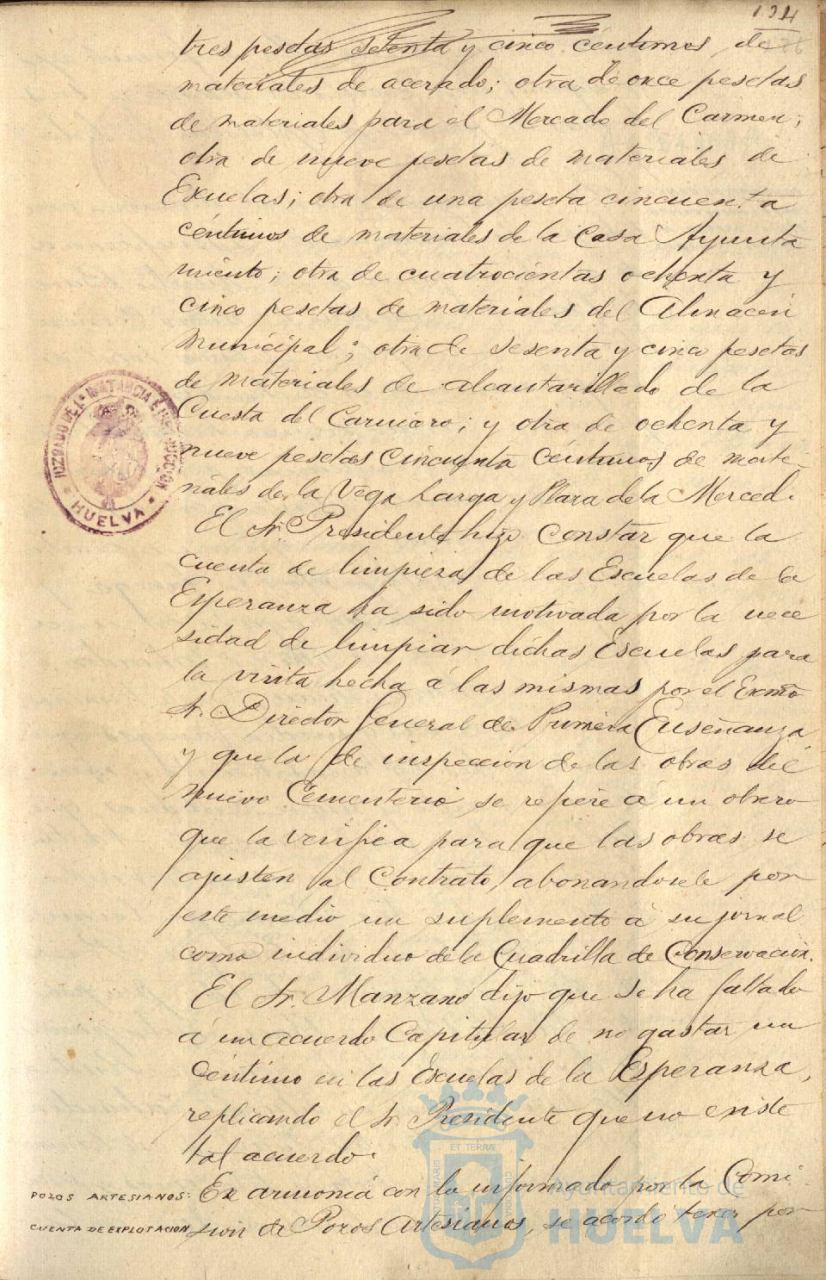 134
tres pesetas setenta y cinco céntimos, de
materiales de acerado; otra de once pesetas
de materiales para el Mercado del Carmen;
otra de nueve pesetas de materiales de
Escuelas; otra de una peseta cincuenta
céntimos de materiales de la Casa Ayunta
miento; otra de cuatrocientas ochenta y
cinco pesetas de materiales del Almacén
Municipal; otra de sesenta y cinco pesetas
de materiales de alcantarillado de la
Cuesta del Carnicero; y otra de ochenta y
nueve pesetas cincuenta céntimos de mate-
riales de la Vega Larga y Plaza de la Merced.
El Sr. Presidente hizo constar que la
cuenta de limpieza de las Escuelas de la
Esperanza ha sido motivada por la nece
sidad de limpiar dichas Escuelas para
la visita hecha á las mismas por el Exmo
Sr. Director General de Primera Enseñanza
y que la de inspección de las obras del
nuevo Cementerio, se refiere á un obrero
que la verifica para que las obras se
ajusten al Contrato abonandosele por
este medio un suplemento á su jornal
como individuo de la Cuadrilla de Conservación.
El Sr. Manzano dijo que se ha faltado
á un acuerdo Capitular de no gastar un
céntimo en las Escuelas de la Esperanza,
replicando el Sr. Presidente que no existe
tal acuerdo.
POZOS ARTESIANOS: En armonía con lo informado por la Comi-
CUENTA DE EXPLOTACION sión de Pozos Artesianos, se acordó tener por
JUZGADO DE 1ª INSTANCIA E INSTRUCCION
HUELVA
Ayuntamiento de
HUELVA